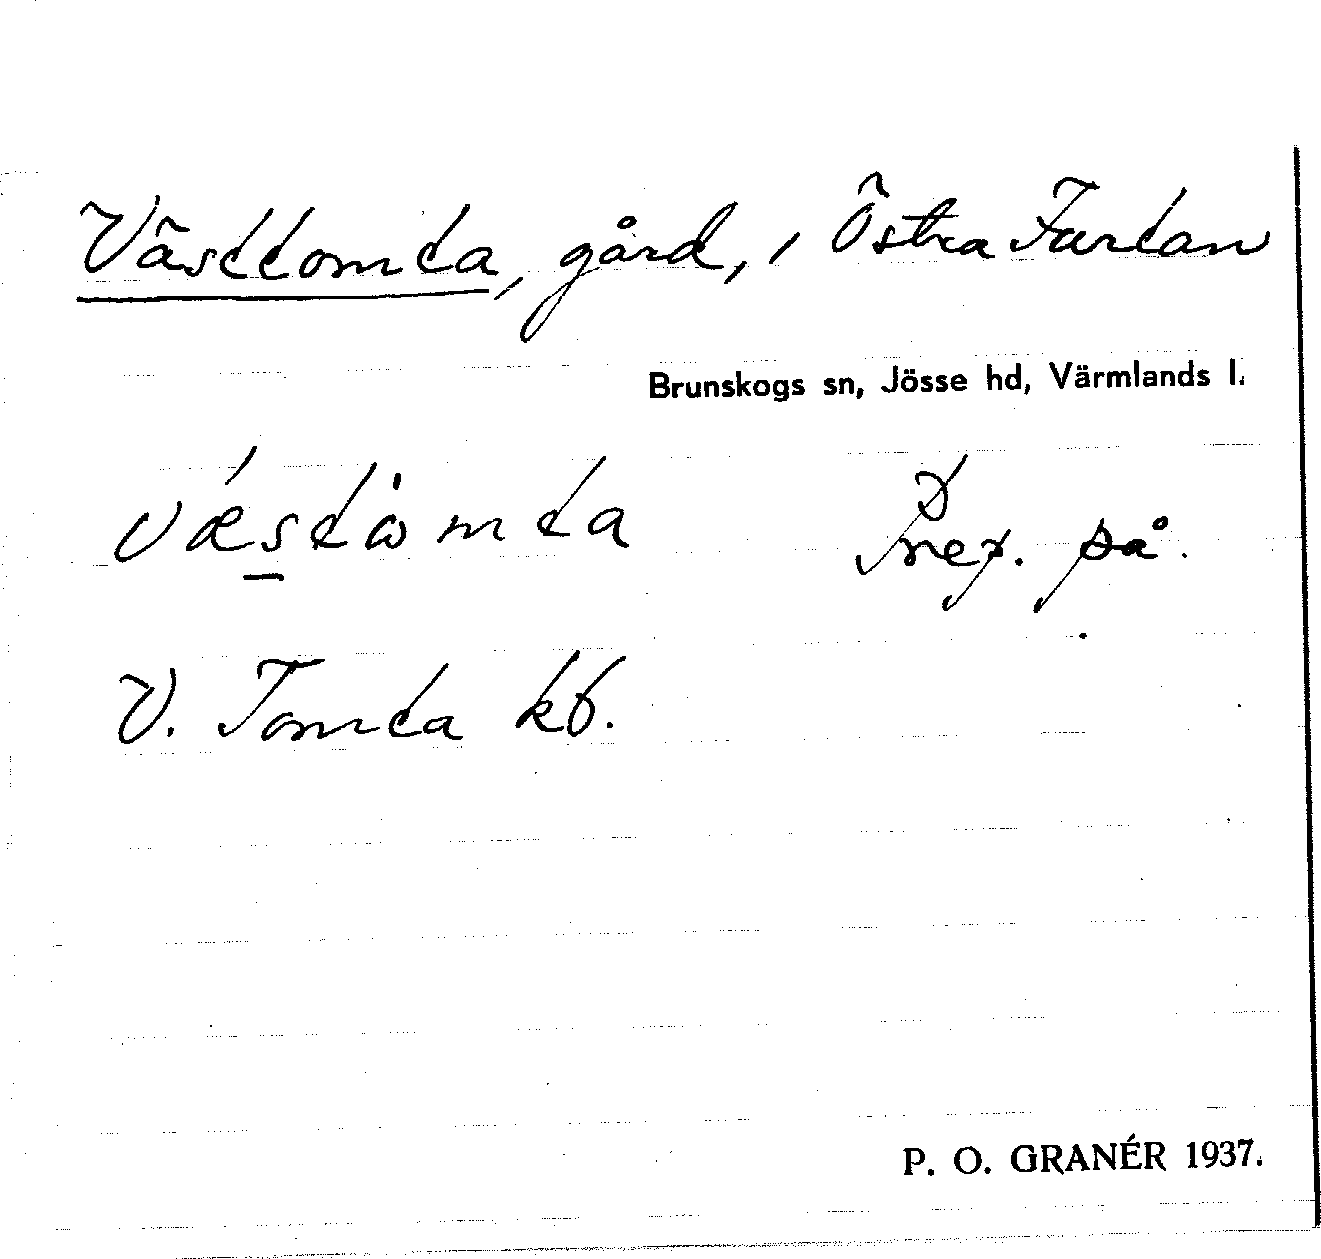 Västtomta, gård, i Östra Furtan
Brunskogs sn, Jösse hd, Värmlands l.
vǽstὼmta Prep. på.
V. Tomta kb.
P. O. GRANÉR 1937.